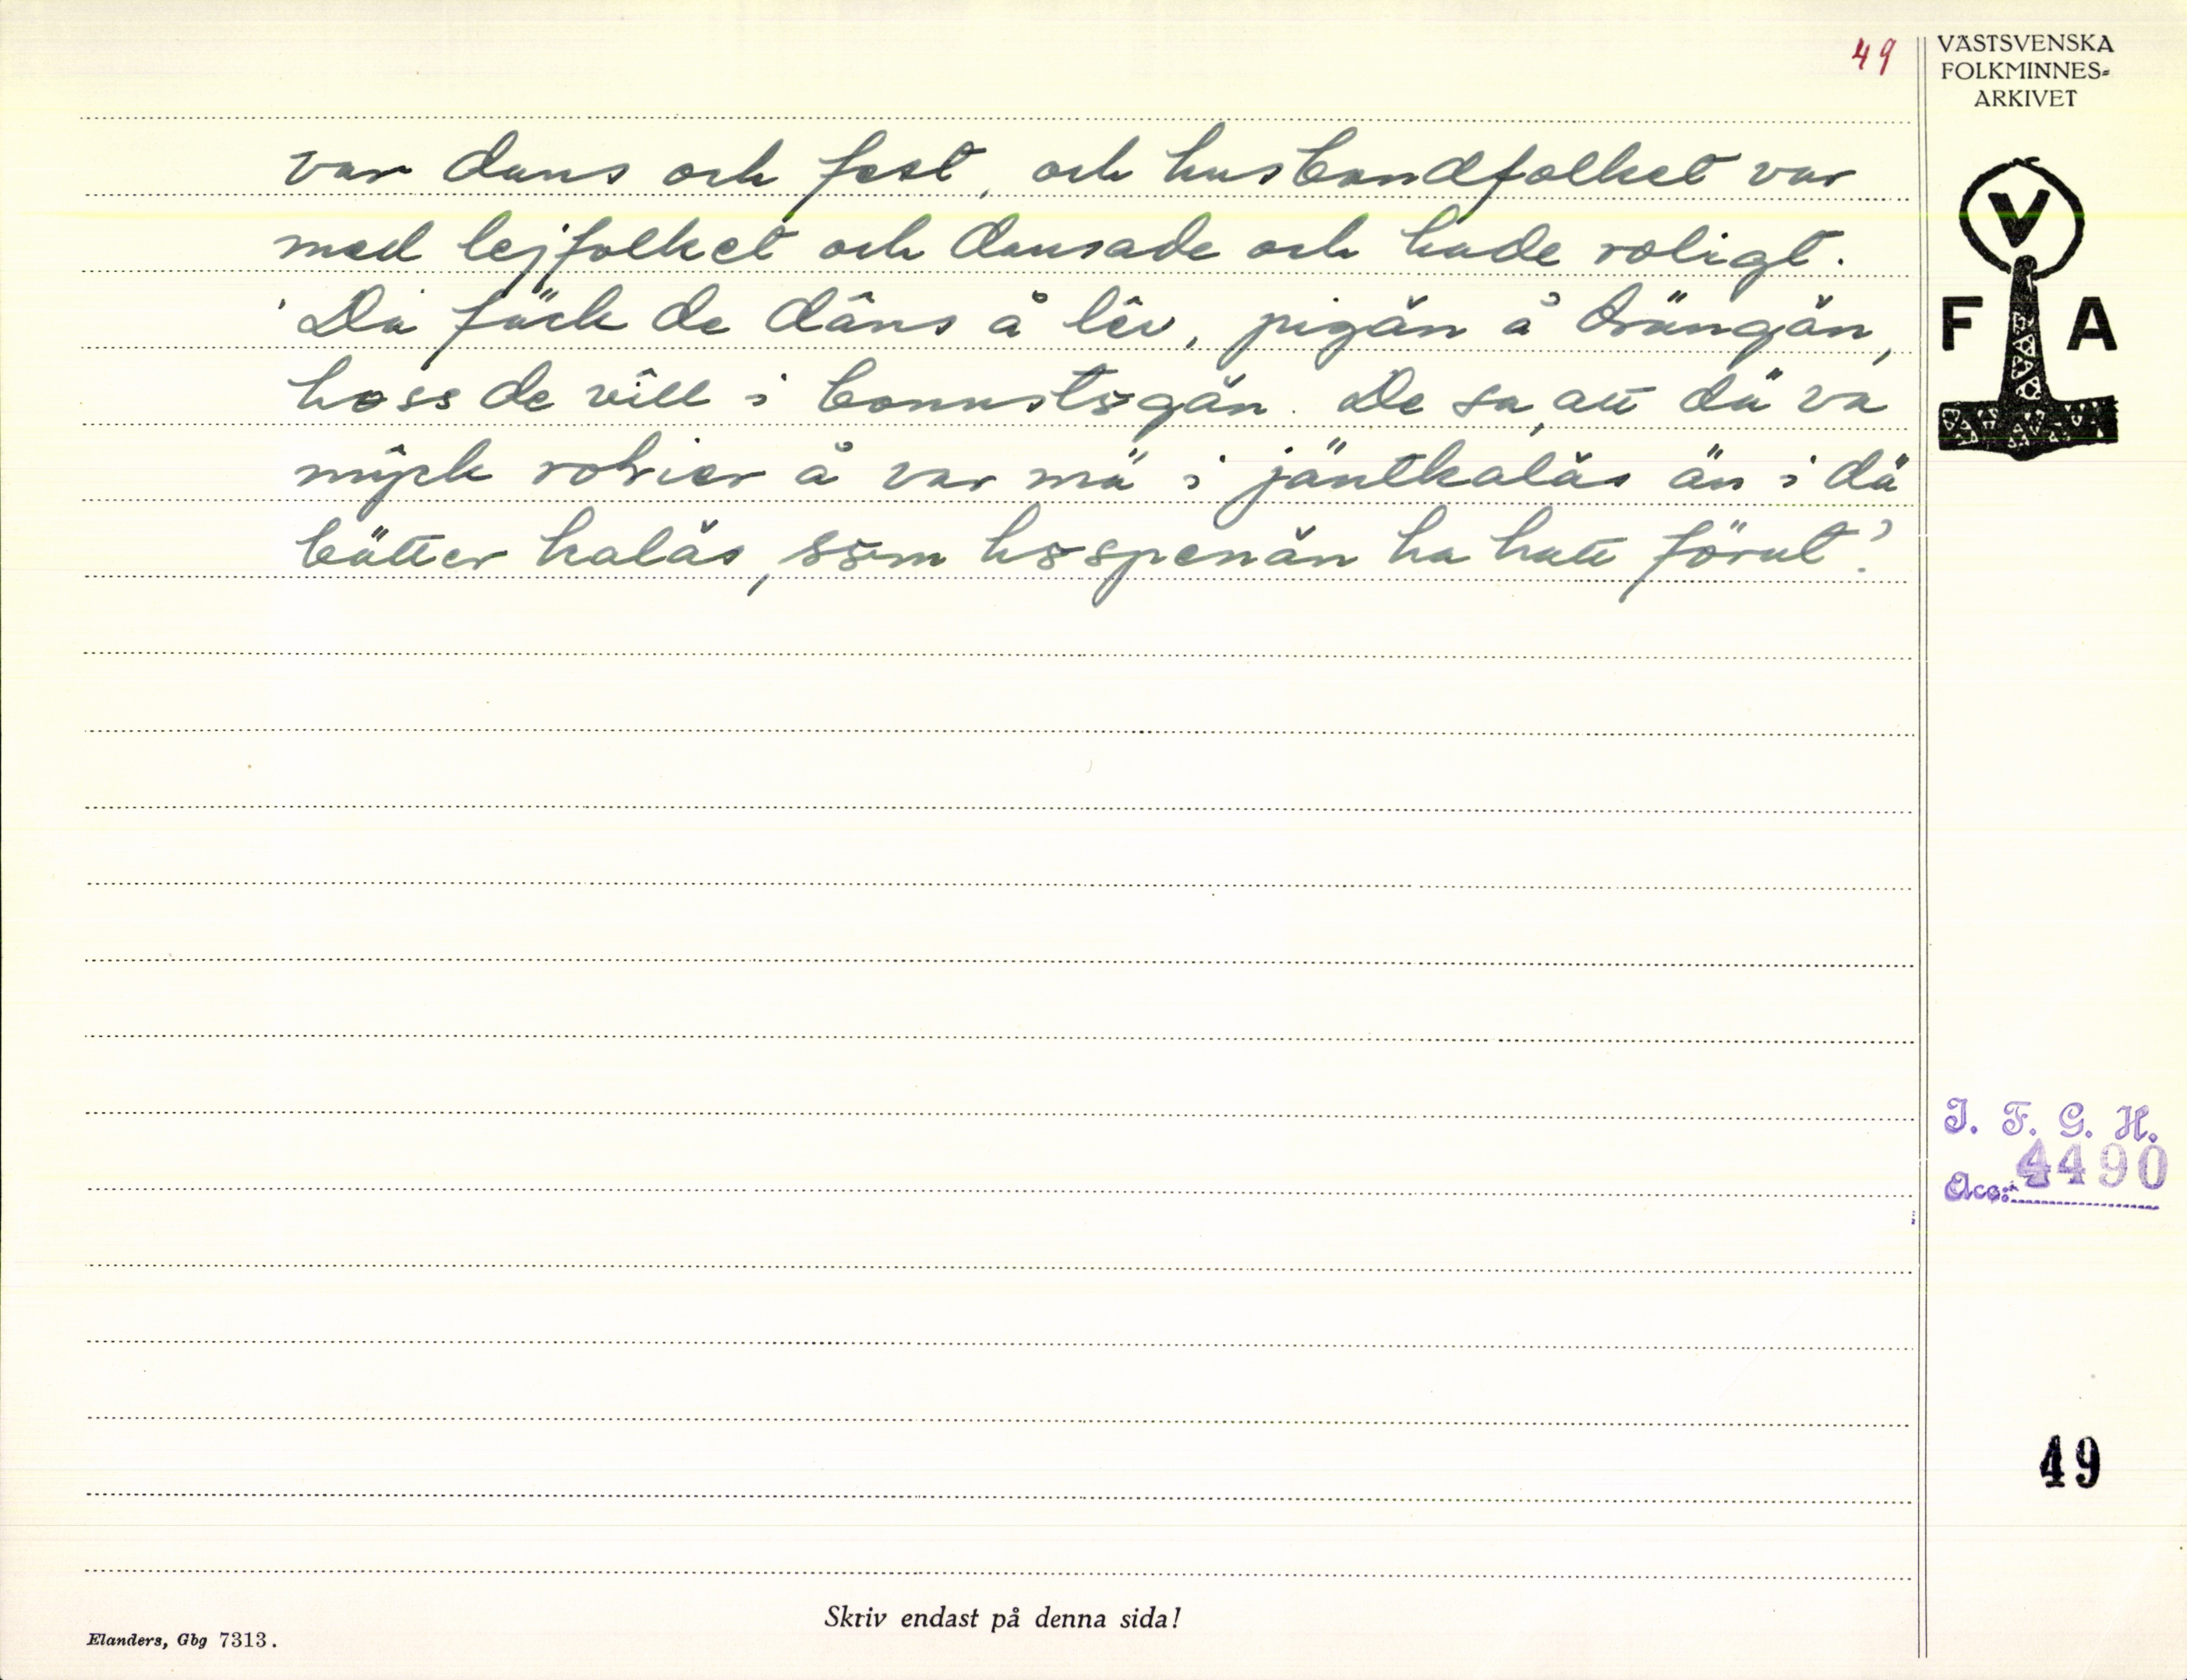 49
VÄSTSVENSKA
FOLKMINNES-
ARKIVET
V
F A
var dans och fest, och husbondfolket var
med lejfolket och dansade och hade roligt.
'Dä feck de dâns å lêv, pigăn å drängăn,
hoss de vîll i bonnstsgăn. De sa, att dä va
mŷck roliier å var mä i jäntkalăs än i dä
bätter kalăs, ssm hsspenăn ha hatt förut.'
I. F. G. H.
Acc: 4490
49
Skriv endast på denna sida!
Elanders, Gbg 7313.